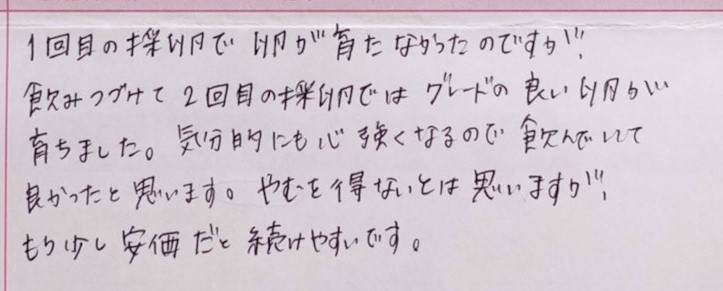 1回目の採卵で卵が育たなかったのですが、
飲みつづけて2回目の採卵ではグレードの良い卵が
育ちました。気分的にも心強くなるので飲んでいて
良かったと思います。やむを得ないとは思いますが、
もう少し安価だと続けやすいです。